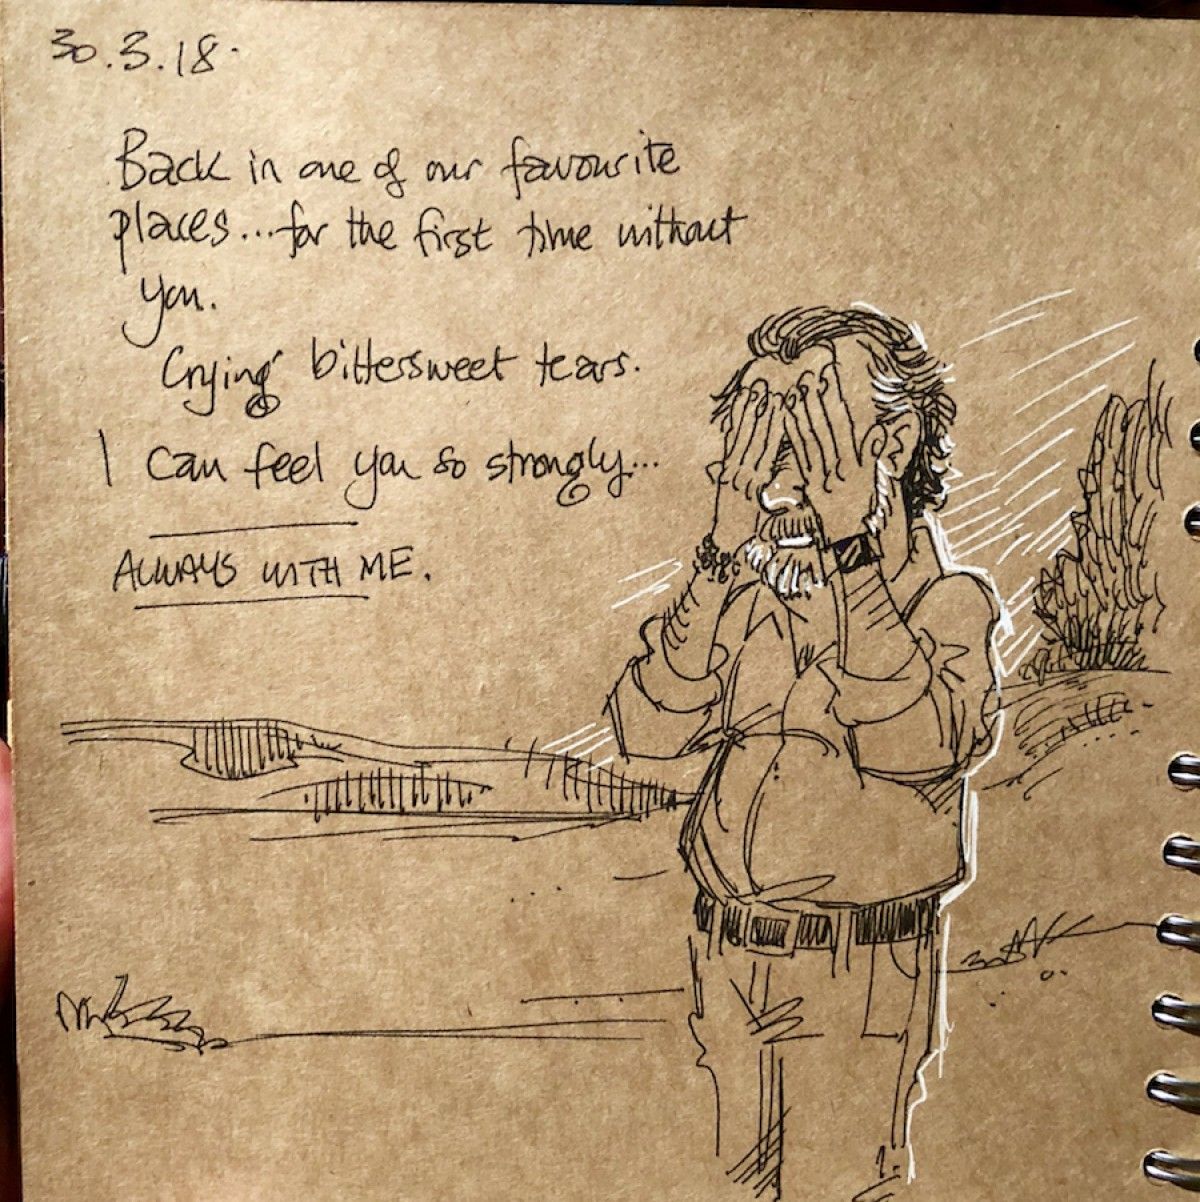 30.3.18.
Back in one of our favourite
places...for the first time without
you.
Crying bittersweet tears.
I can feel you so strongly...
ALWAYS WITH ME.